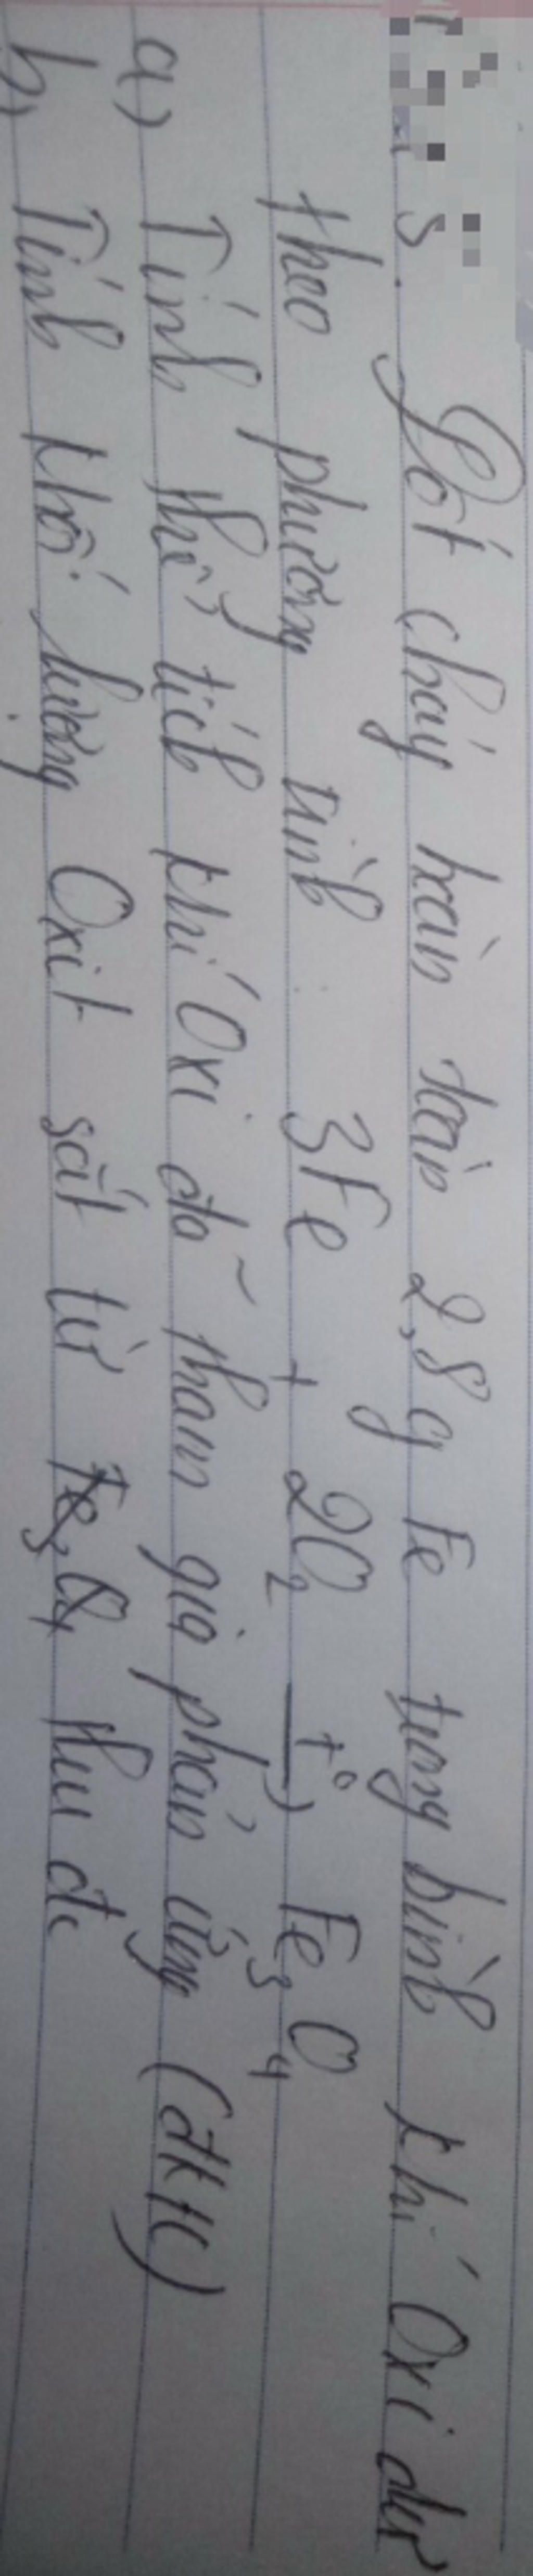 3. Đốt cháy hoàn toàn 2,8 g Fe trong bình khí Oxi dư
theo phương trình : 3Fe + 2O₂ —t°→ Fe₃O₄
a) Tính thể tích khí Oxi đã tham gia phản ứng (đktc)
b, Tính khối lượng Oxit sắt từ Fe₃O₄ thu đc